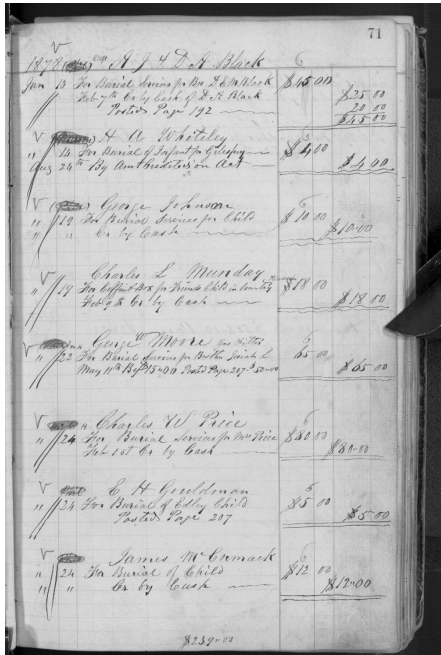 71
1878 A J & D H Black 6
Jan 13 For Burial Services for Mrs J E M Black $45 00
Feb 7th Cr by Cash of D H Black $25 00
20 00
Posted Page 192 $45 00
H A Whiteley 6
" 14 For Burial of Infant for Gillespy $4 00
Aug 24th By Amt Credited on Act $4 00
George Johnson 6
" 19 For Burial Services for Child $10 00
" " Cr by Cash $10-00
Charles L Munday
" 19 For Coffin & Box for Child in Country $18 00
Feb 9th Cr by Cash $18 00
George W Moore 6
" 22 For Burial Services for Brother Josiah L 65 00
May 11th By $15-00 Posted Page 207 $50-00 $65 00
Charles W Price 6
" 24 For Burial Services for Mrs Price $80 00
Feb 1st Cr by Cash $80-00
C H Gouldman 6
" 24 For Burial of Edley Child $5 00
Posted Page 207 $5 00
James McCormack 6
" 24 For Burial of Child $12 00
" " Cr by Cash $12-00
$239-00